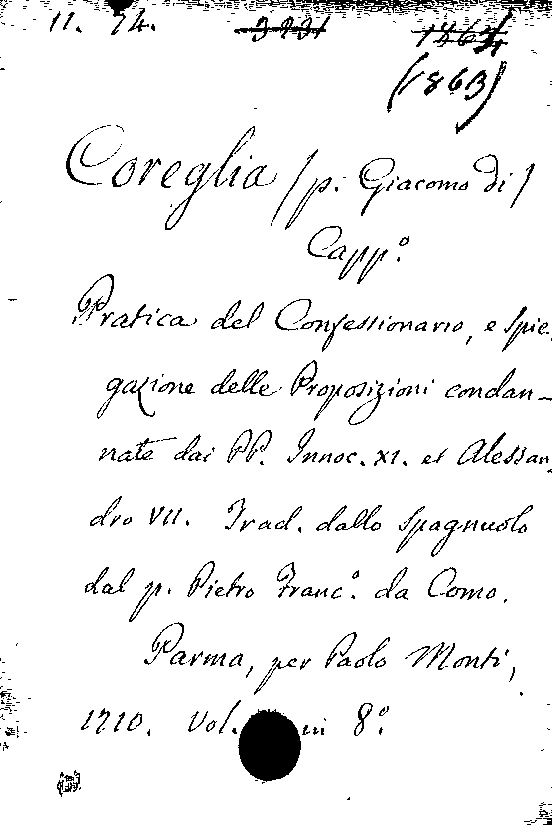 11. 74. 3231 1864
(1863)
Coreglia (p. Giacomo di)
Capp.º
Pratica del Confessionario, e spie-
gazione delle Proposizioni condan-
nate dai PP. Innoc. XI. et Alessan-
dro VII. Trad. dallo spagnuolo
dal p. Pietro Franc.º da Como.
Parma, per Paolo Monti,
1710. Vol. in 8º